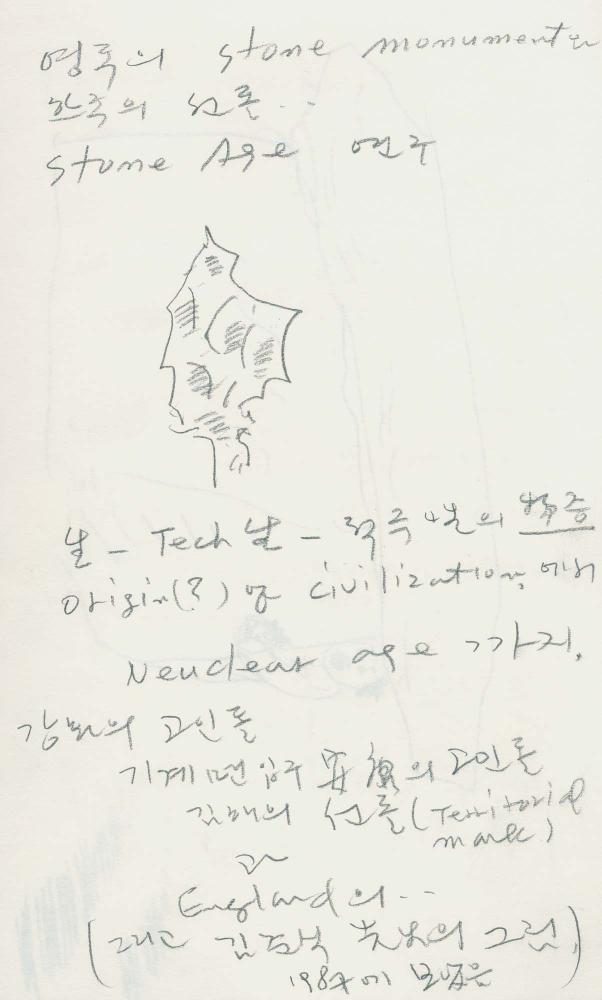 영국의 stone monument와
한국의 선돌..
stone Age 연구
날 - Tech 날 -
origin(?) of civilization, 에서
Neuclear age 까지.
강화의 고인돌
기계면 입구 의 고인돌
김해의 선돌 (Territorial
mark)
과
England의..
(그리고 김 의 그림,)